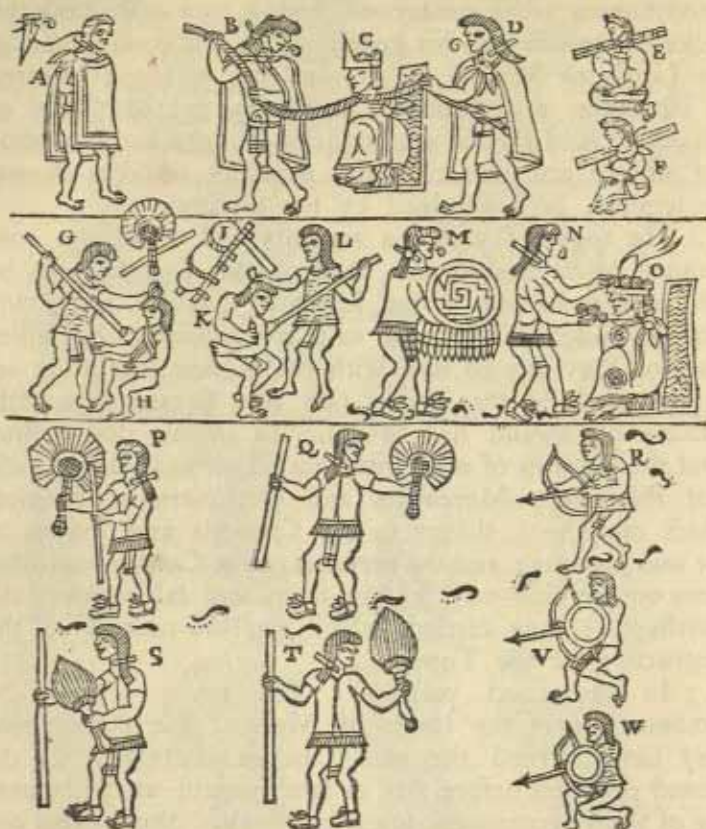 A B C D E
F
G I L M N O
K
H
P Q R
S T V
W